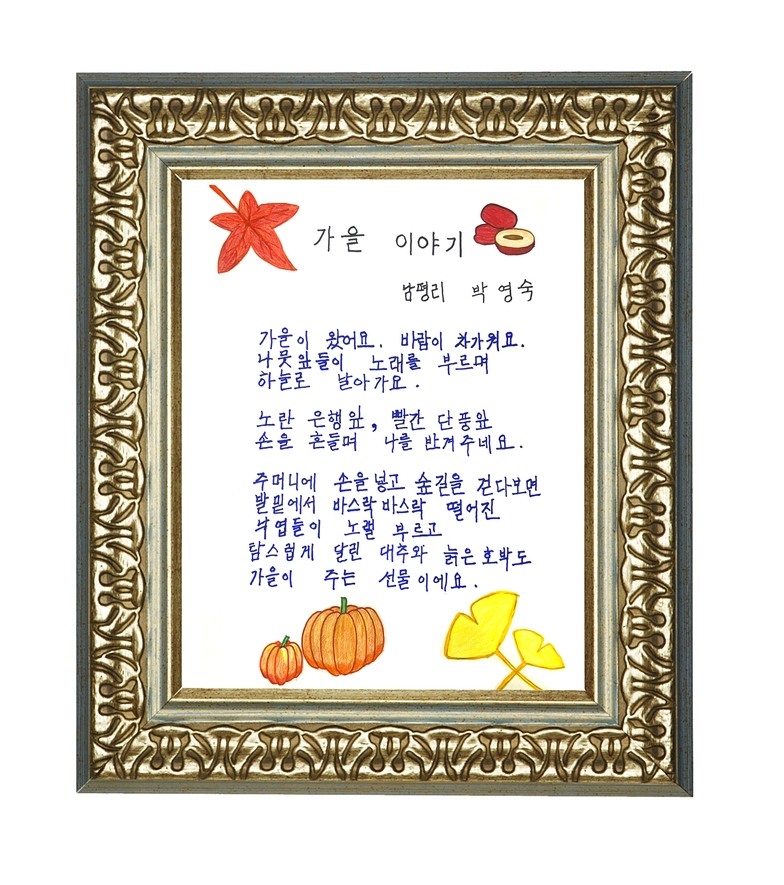 가을 이야기
남평리 박영숙
가을이 왔어요. 바람이 차가워요.
나뭇잎들이 노래를 부르며
하늘로 날아가요.
노란 은행잎, 빨간 단풍잎
손을 흔들며 나를 반겨주네요.
주머니에 손을 넣고 숲길을 걷다보면
발밑에서 바스락바스락 떨어진
낙엽들이 노랠 부르고
탐스럽게 달린 대추와 늙은호박도
가을이 주는 선물이에요.